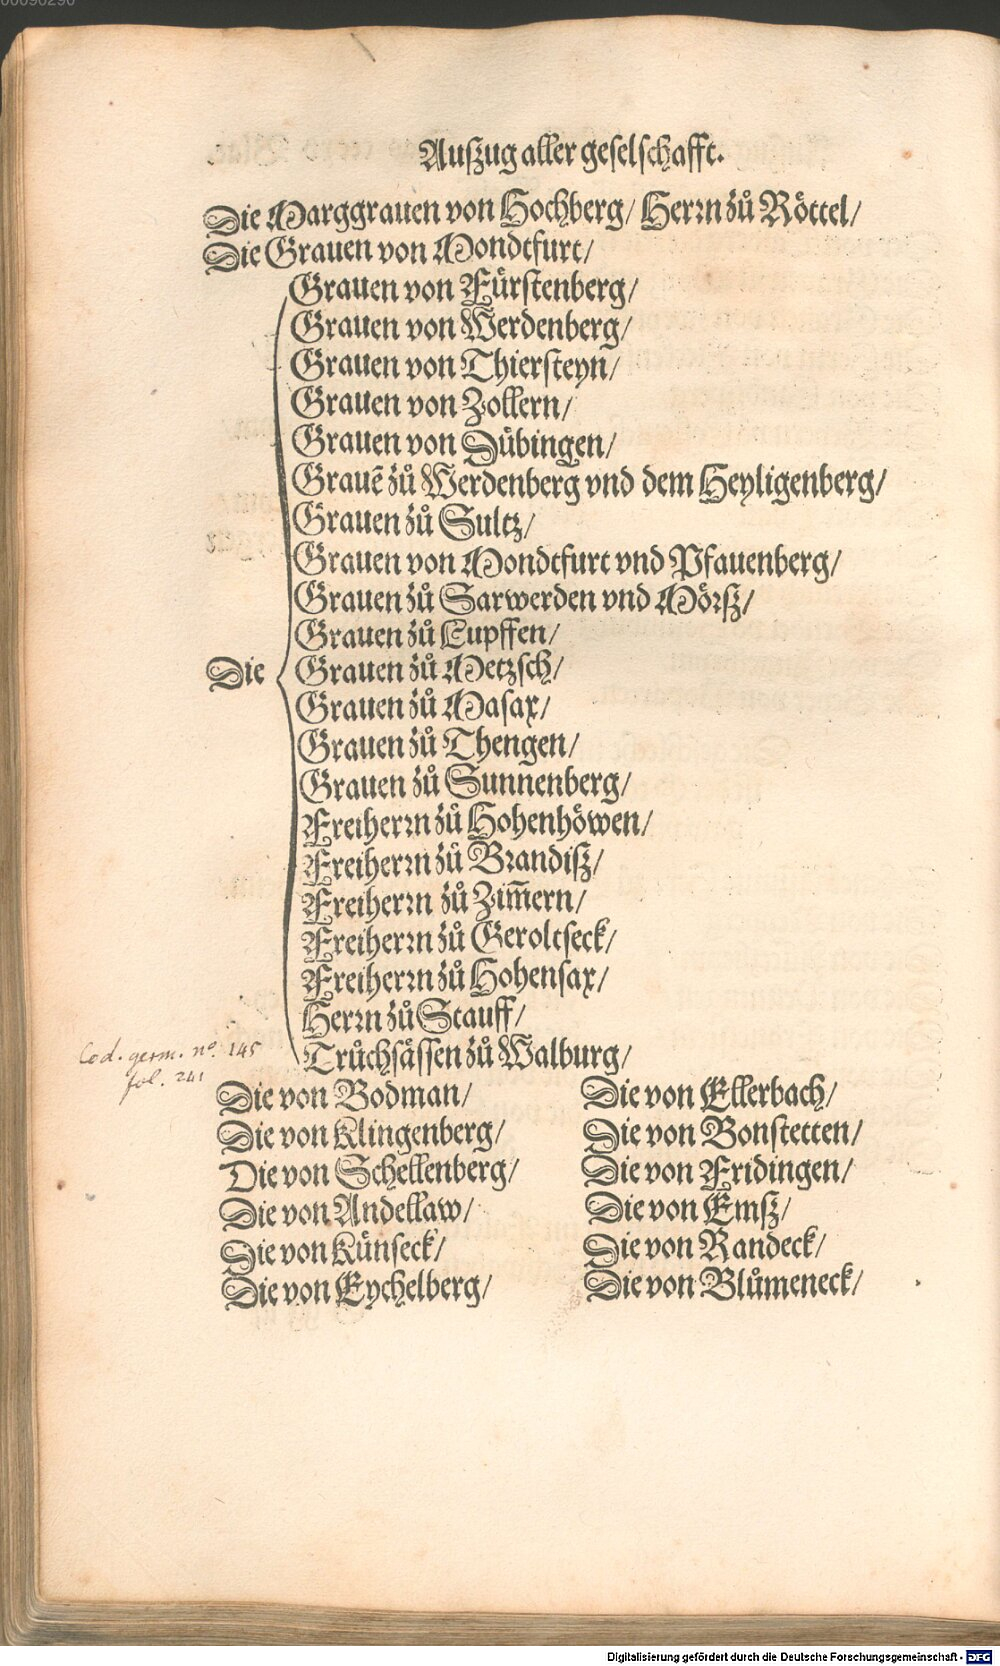 00090290
Auszug aller geselschafft.
Die Marggrauen von Hochberg/ Herrn zů Röttel/
Die Grauen von Mondtfurt/
Grauen von Fürstenberg/
Grauen von Werdenberg/
Grauen von Thiersteyn/
Grauen von Zollern/
Grauen von Dübingen/
Grauē zů Werdenberg vnd dem Heyligenberg/
Grauen zů Sultz/
Grauen von Mondtfurt vnd Pfauenberg/
Grauen zů Sarwerden vnd Mörsz/
Grauen zů Lupffen/
Die Grauen zů Metzsch/
Grauen zů Masax/
Grauen zů Thengen/
Grauen zů Sunnenberg/
Freiherrn zů Hohenhöwen/
Freiherrn zů Brandisz/
Freiherrn zů Zim̄ern/
Freiherrn zů Geroltseck/
Freiherrn zů Hohensax/
Herrn zů Stauff/
Trůchsässen zů Walburg/
Cod. germ. nº. 145
fol. 241
Die von Bodman/
Die von Klingenberg/
Die von Schellenberg/
Die von Andellaw/
Die von Künseck/
Die von Eychelberg/
Die von Ellerbach/
Die von Bonstetten/
Die von Fridingen/
Die von Emsz/
Die von Randeck/
Die von Blůmeneck/
Digitalisierung gefördert durch die Deutsche Forschungsgemeinschaft - DFG